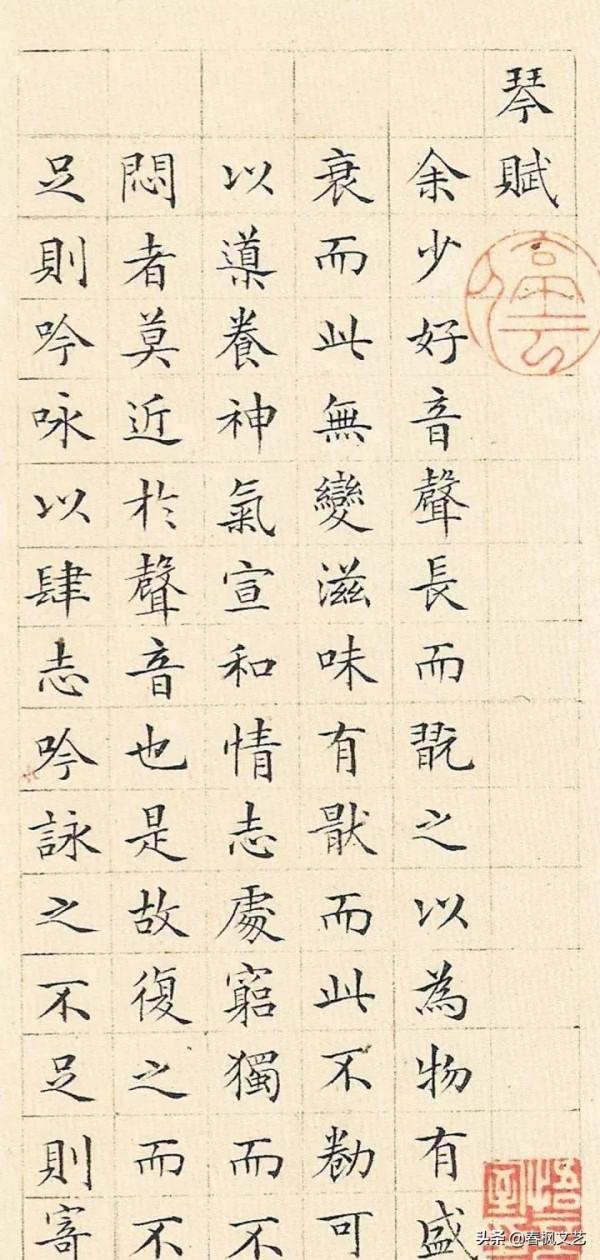 琴賦
余少好音聲長而翫之以為物有盛
衰而此無變滋味有猒而此不勌可
以導養神氣宣和情志處窮獨而不
悶者莫近於聲音也是故復之而不
足則吟咏以肆志吟詠之不足則寄
头条 @春枫文艺